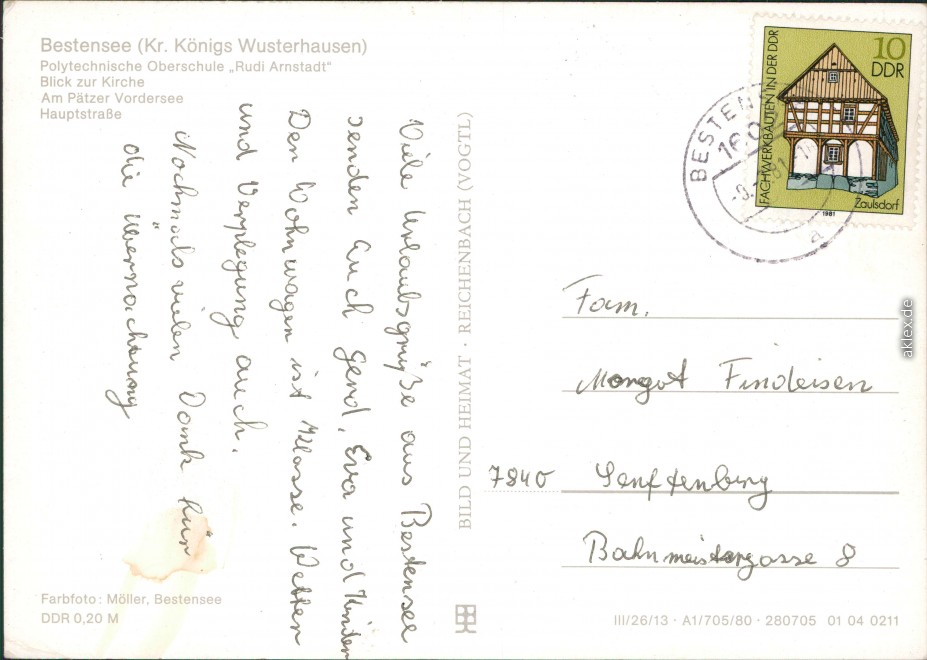 Bestensee (Kr. Königs Wusterhausen)
Polytechnische Oberschule „Rudi Arnstadt"
Blick zur Kirche
Am Pätzer Vordersee
Hauptstraße
Viele Urlaubsgrüße aus Bestensee
senden Euch Gerd, Eva und Kinder
Den Wohnwagen ist Klasse. Wetter
und Verplegung auch.
Nochmals vielen Dank für
die Übernachtung
Farbfoto: Möller, Bestensee
DDR 0,20 M
BILD UND HEIMAT · REICHENBACH (VOGTL)
10
DDR
FACHWERKBAUTEN IN DER DDR
Zaulsdorf
1981
BESTEN
160
a
Fam.
Margot Findeisen
7840 Senftenberg
Bahnmeistergasse 8
III/26/13 · A1/705/80 · 280705 01 04 0211
aklex.de